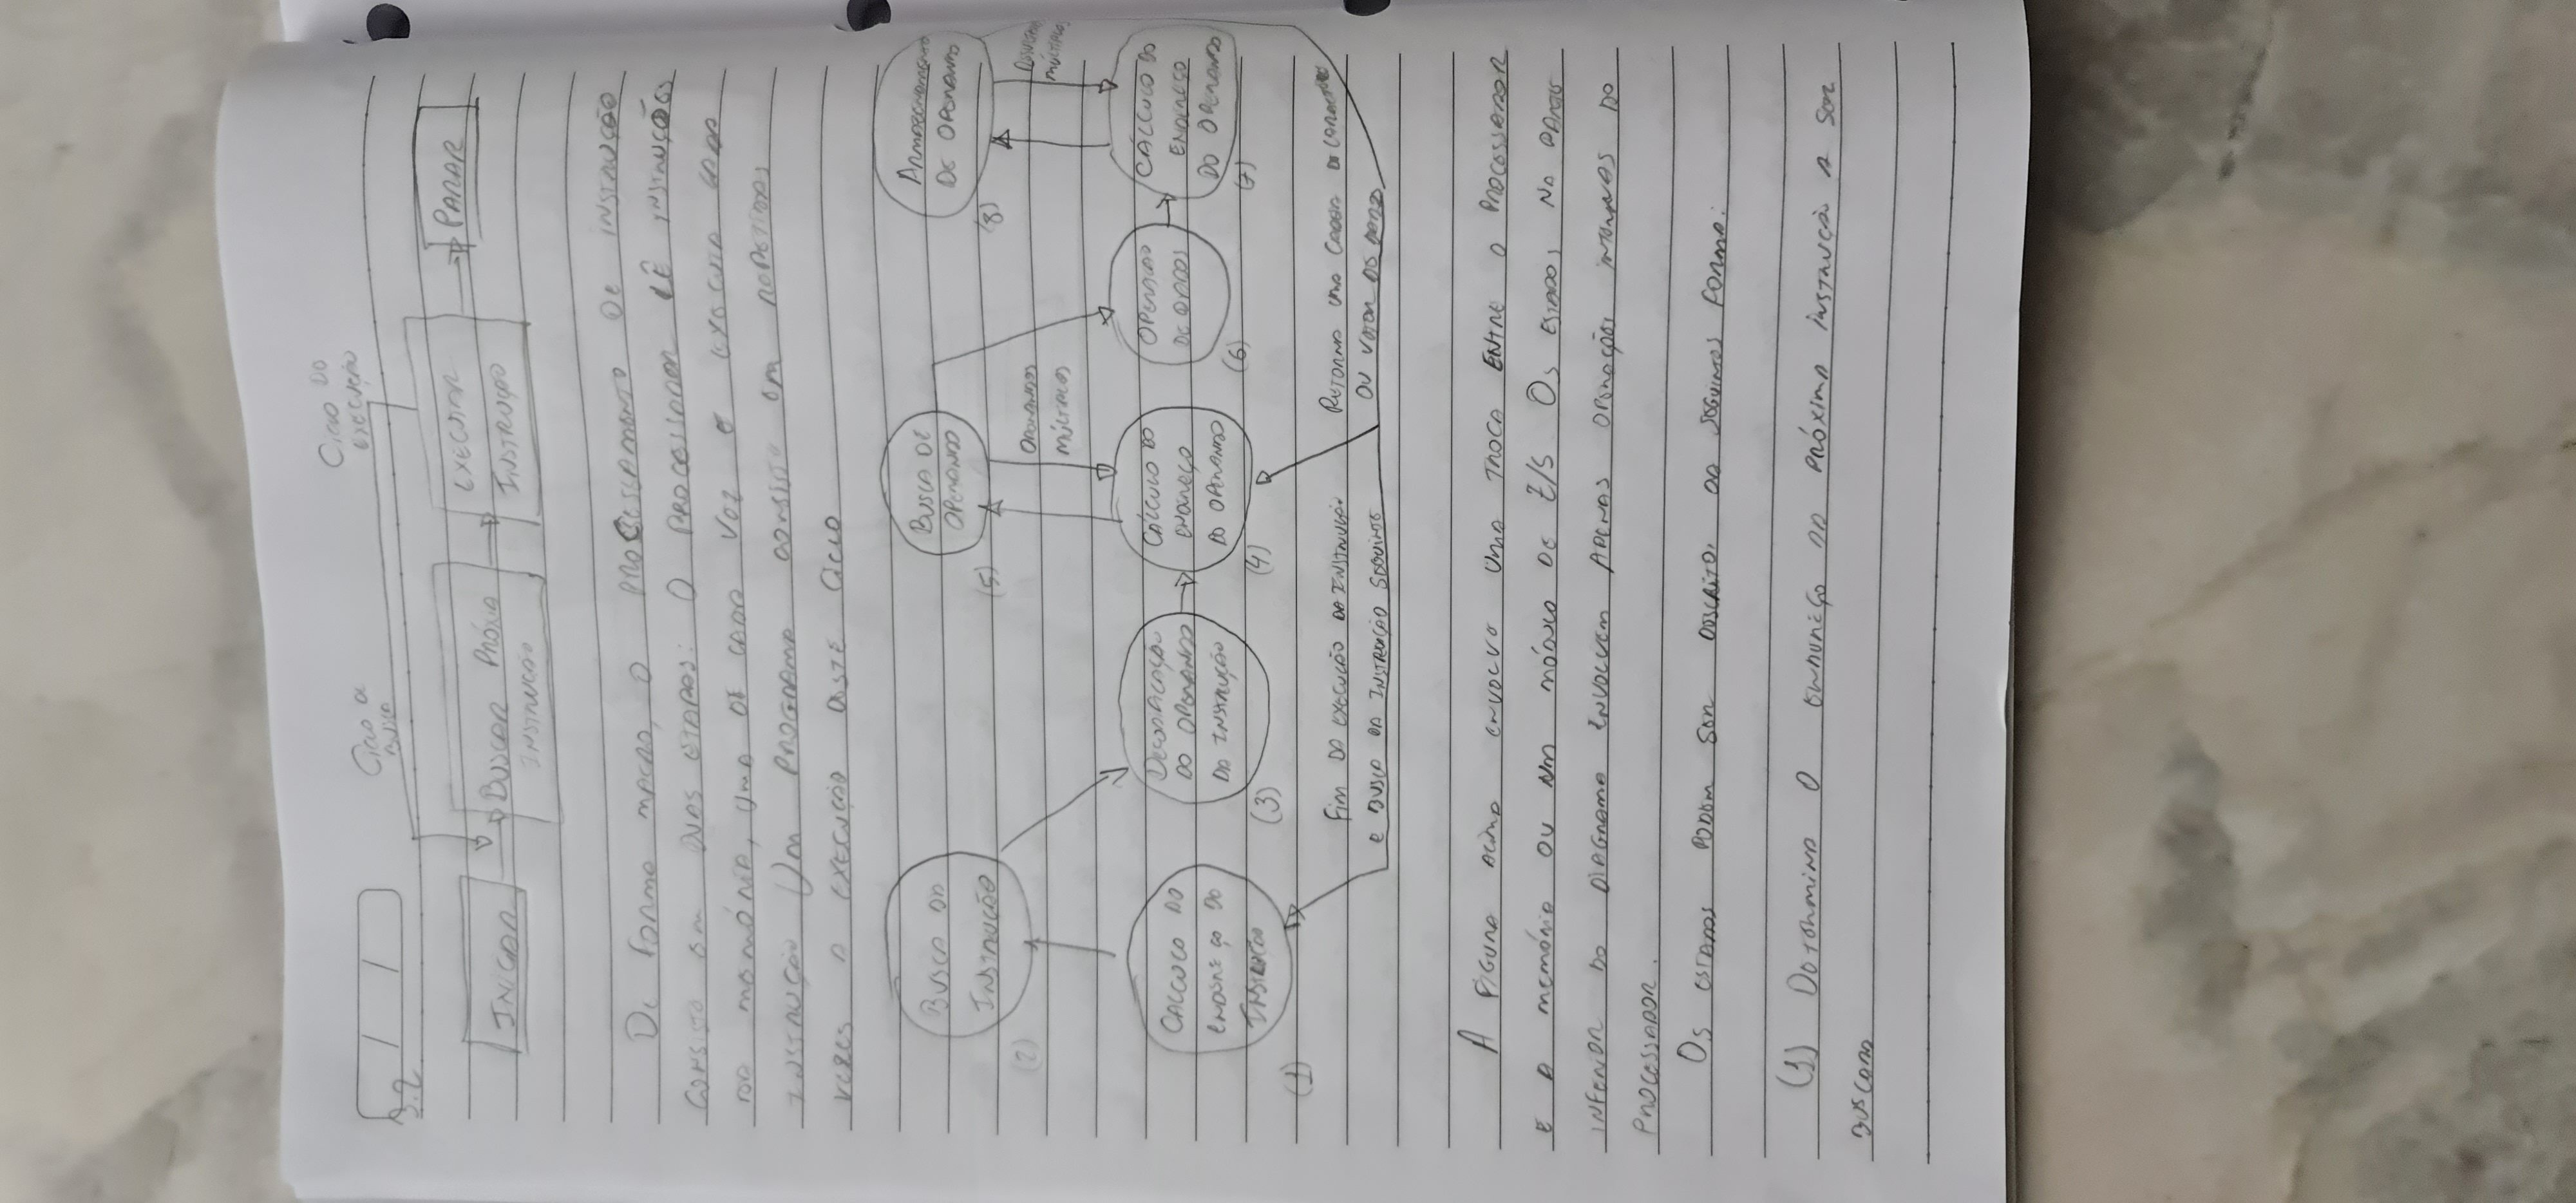 3.2
Ciclo de
Busca
Ciclo do
Execução
Iniciar
Buscar Próxia
Instrução
Executar
Instrução
Parar
De forma macro, o processamento de instrução
consiste em duas etapas: o processador lê instruções
da memória, uma de cada vez e executa cada
instrução Um programa consiste em repetidas
vezes a execução deste ciclo
Busca da
Instrução
(2)
Busca de
Operando
(5)
Armazenamento
de operando
(8)
Operandos
múltiplos
múltiplos
Calculo do
endereço do
Instrução
(1)
Decodificação
do operando
da instrução
(3)
Cálculo do
endereço
do operando
(4)
Operação
de dados
(6)
Cálculo do
endereço
do operando
(7)
Fim da execução da instrução
e busca da instrução seguinte
Retorna uma cadeia de caracteres
ou vetor de dados
A figura acima envolve uma troca entre o processador
e a memória ou um módulo de E/S Os estados na parte
inferior do diagrama envolvem apenas operações internas do
processador.
Os estados podem ser descritos da seguintes forma:
(1) Determina o endereço da próxima instrução a ser
buscada